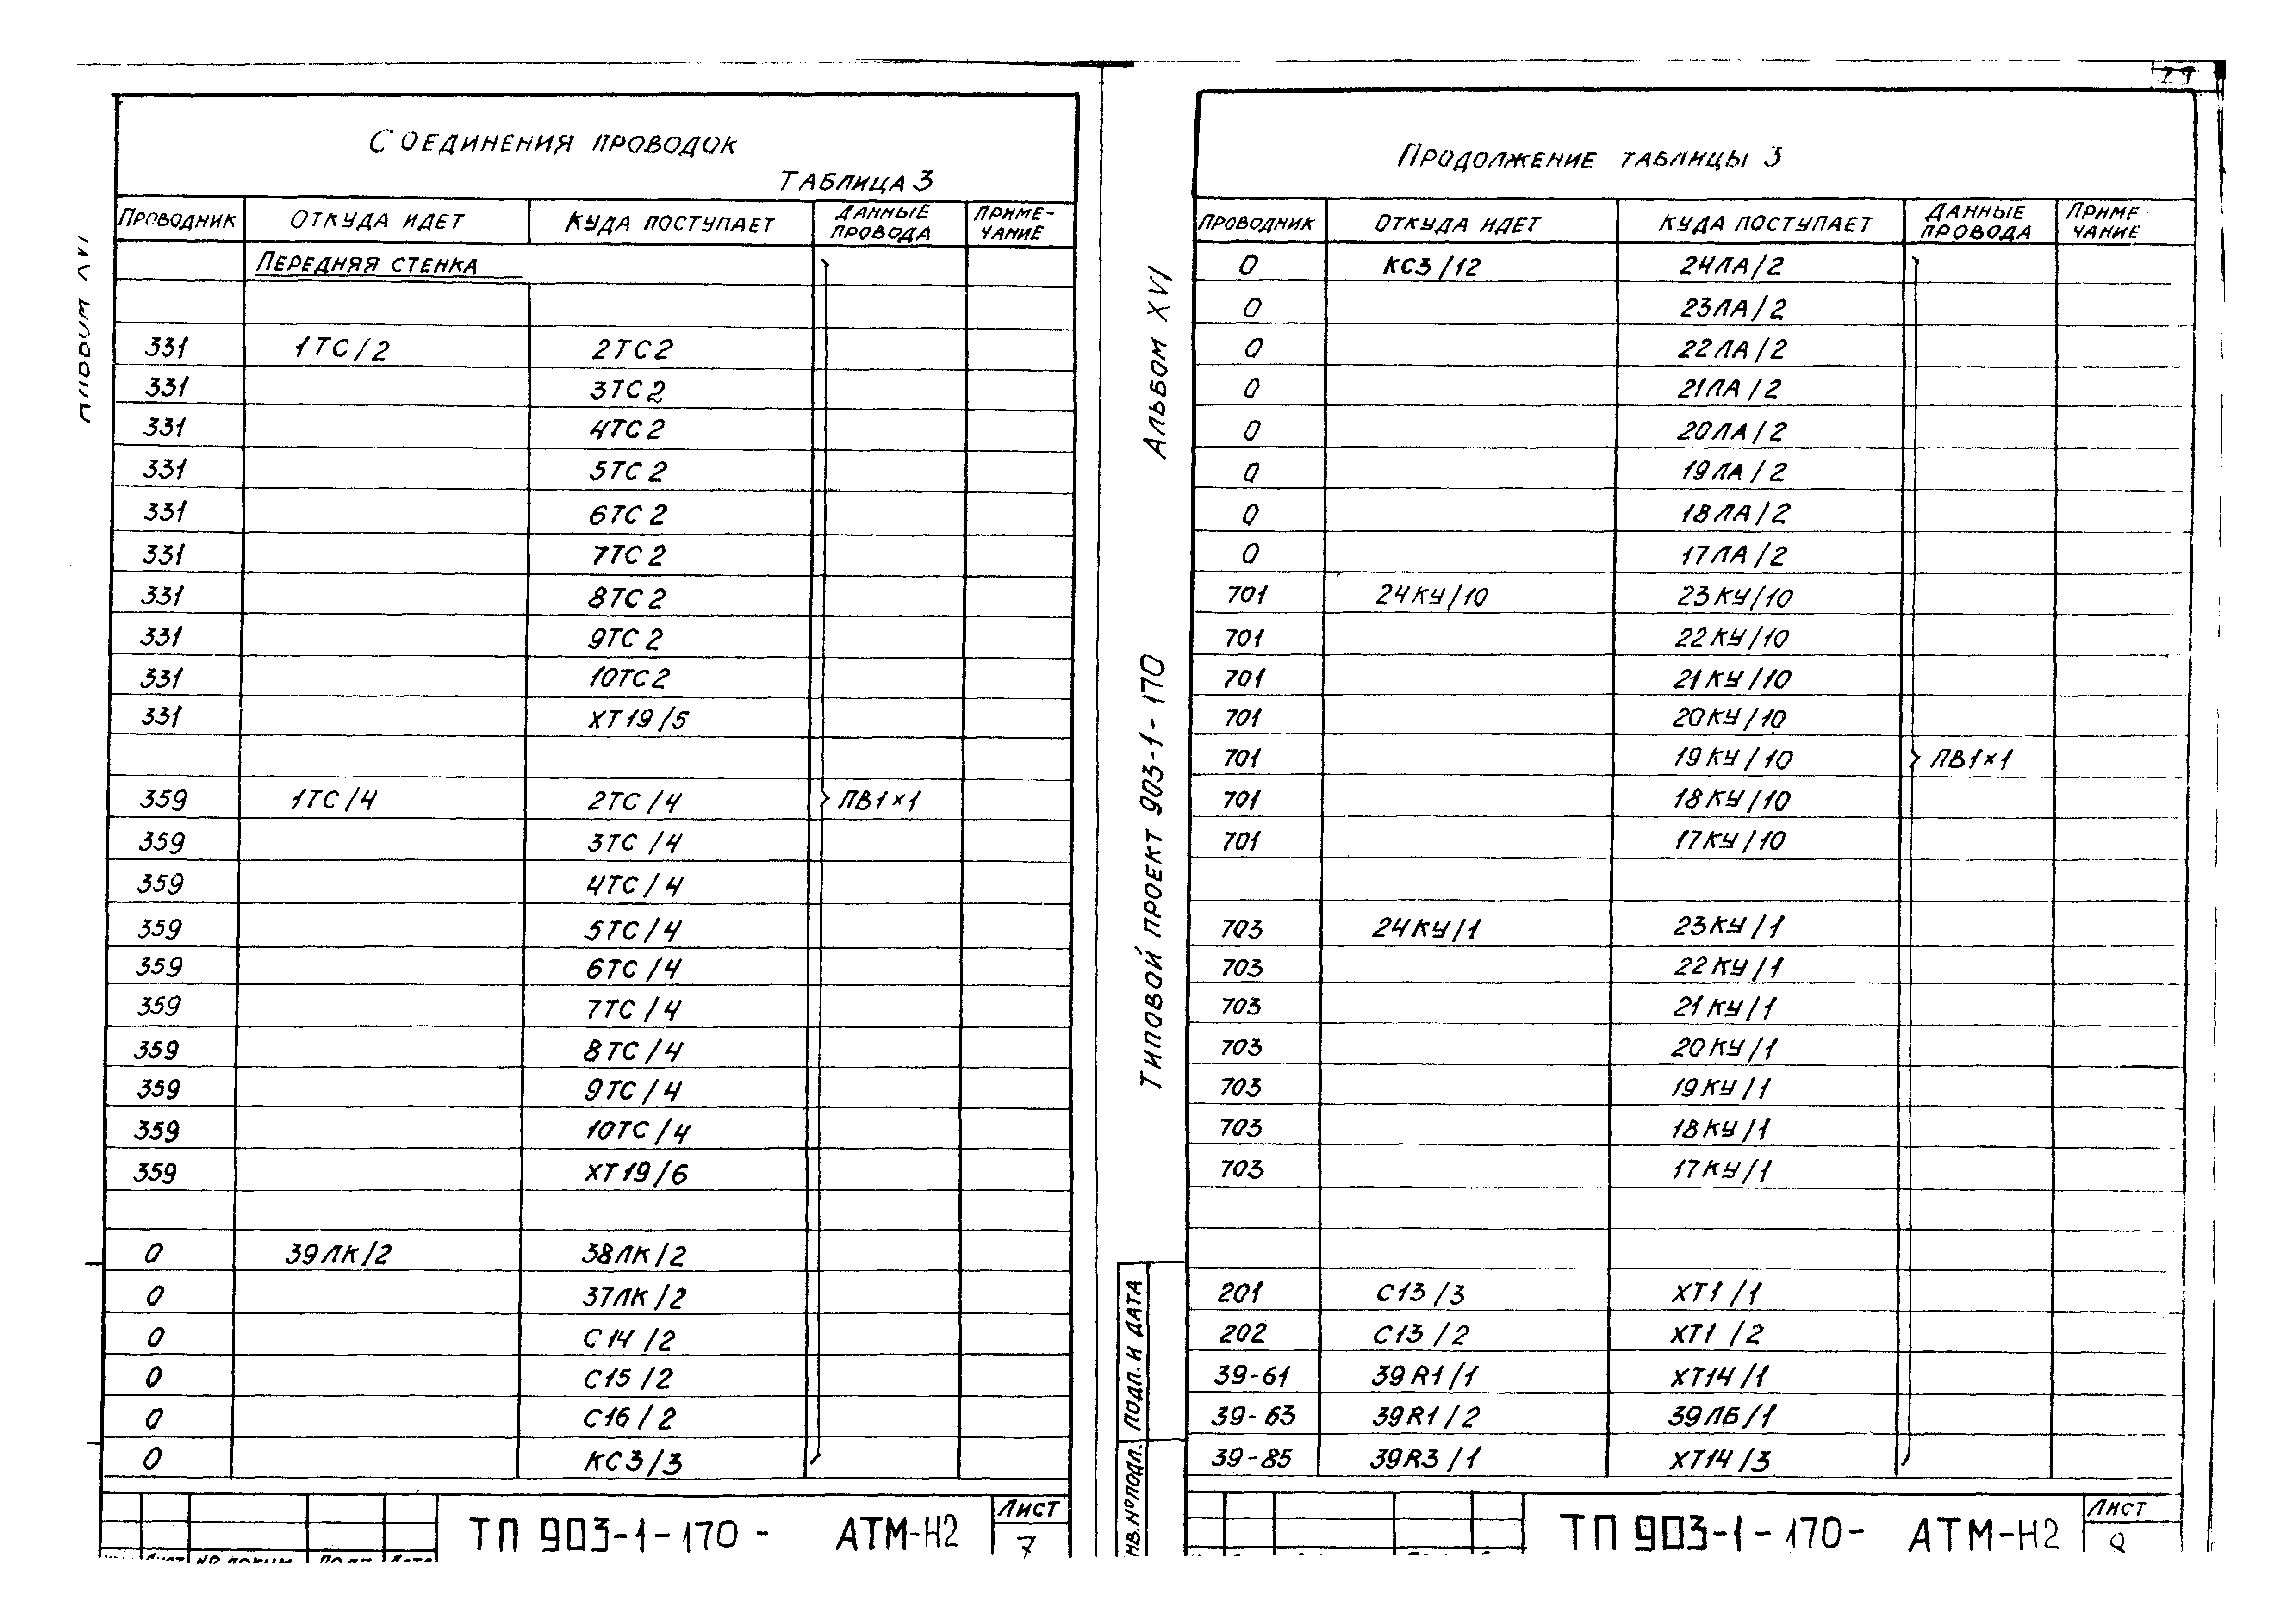 СОЕДИНЕНИЯ ПРОВОДОК
ТАБЛИЦА 3
ПРОВОДНИК ОТКУДА ИДЕТ КУДА ПОСТУПАЕТ ДАННЫЕ ПРОВОДА ПРИМЕ-ЧАНИЕ
ПЕРЕДНЯЯ СТЕНКА
331 1ТС/2 2ТС2
331 3ТС2
331 4ТС2
331 5ТС2
331 6ТС2
331 7ТС2
331 8ТС2
331 9ТС2
331 10ТС2
331 ХТ19/5
359 1ТС/4 2ТС/4 ПВ1×1
359 3ТС/4
359 4ТС/4
359 5ТС/4
359 6ТС/4
359 7ТС/4
359 8ТС/4
359 9ТС/4
359 10ТС/4
359 ХТ19/6
0 39ЛК/2 38ЛК/2
0 37ЛК/2
0 С14/2
0 С15/2
0 С16/2
0 КС3/3
ТП 903-1-170- АТМ-Н2
ЛИСТ
7
29
АЛЬБОМ XVI
ТИПАВОЙ ПРОЕКТ 903-1-170
ПОДП. И ДАТА
ИНВ.№ПОДЛ.
ПРОДОЛЖЕНИЕ ТАБЛИЦЫ 3
ПРОВОДНИК ОТКУДА ИДЕТ КУДА ПОСТУПАЕТ ДАННЫЕ ПРОВОДА ПРИМЕ-ЧАНИЕ
0 КС3/12 24ЛА/2
0 23ЛА/2
0 22ЛА/2
0 21ЛА/2
0 20ЛА/2
0 19ЛА/2
0 18ЛА/2
0 17ЛА/2
701 24КУ/10 23КУ/10
701 22КУ/10
701 21КУ/10
701 20КУ/10
701 19КУ/10 ПВ1×1
701 18КУ/10
701 17КУ/10
703 24КУ/1 23КУ/1
703 22КУ/1
703 21КУ/1
703 20КУ/1
703 19КУ/1
703 18КУ/1
703 17КУ/1
201 С13/3 ХТ1/1
202 С13/2 ХТ1/2
39-61 39R1/1 ХТ14/1
39-63 39R1/2 39ЛБ/1
39-85 39R3/1 ХТ14/3
ТП 903-1-170- АТМ-Н2
ЛИСТ
8